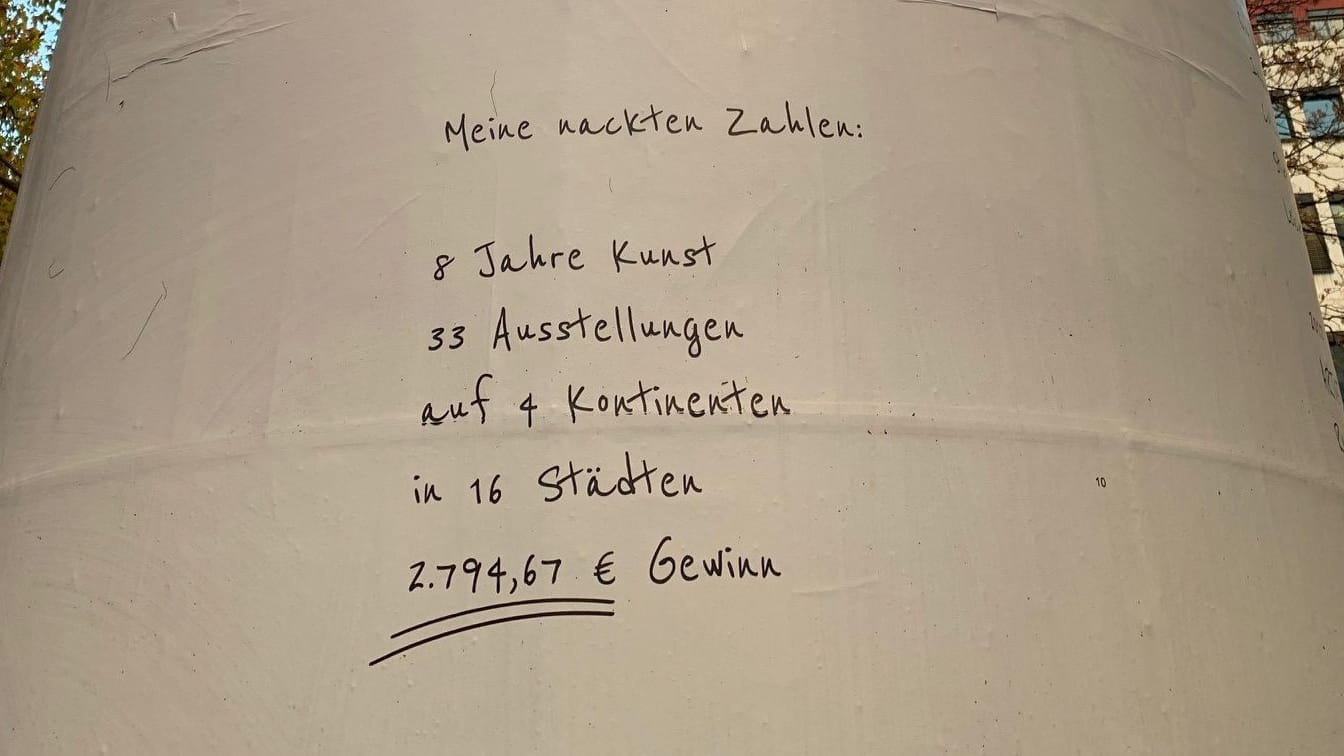 Meine nackten Zahlen:
8 Jahre Kunst
33 Ausstellungen
auf 4 Kontinenten
in 16 Städten
10
2.794,67 € Gewinn